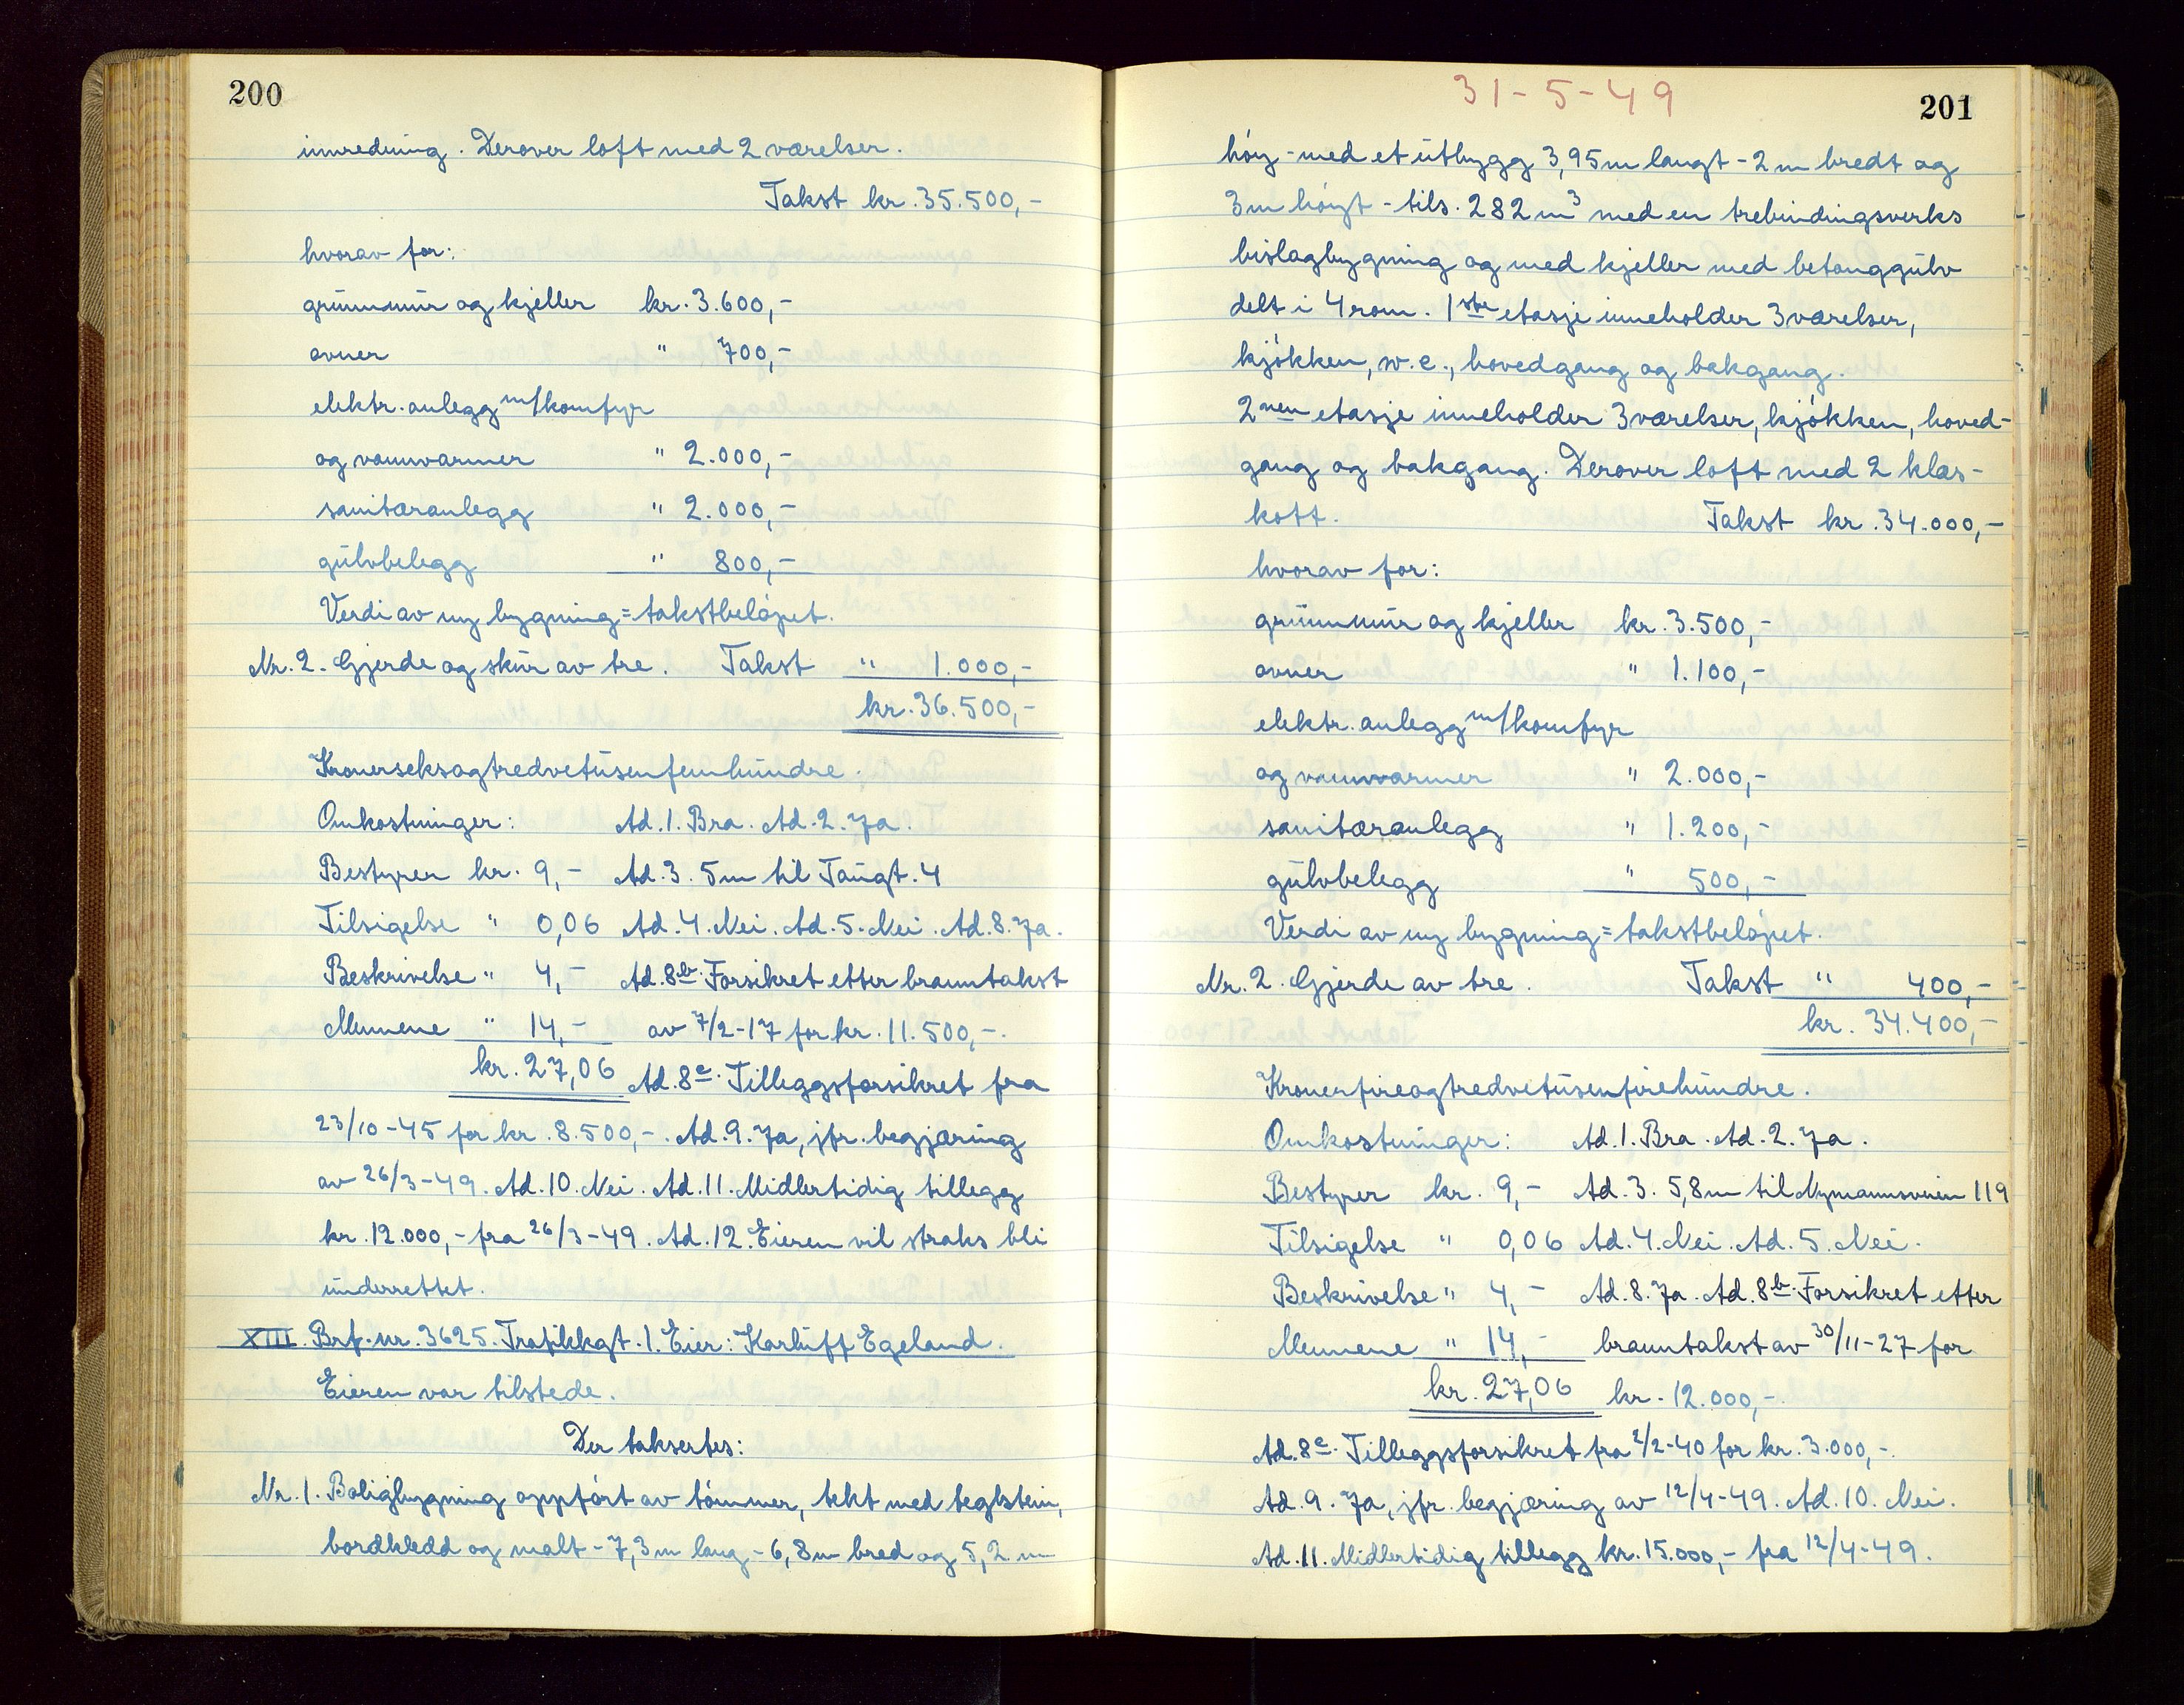 200
innredning. Derover loft med 2 værelser.
Takst kr. 35.500,-
hvorav for:
grunnmur og kjeller kr. 3.600,-
ovner " 700,-
elektr. anlegg m/komfyr
og vannvarmer " 2.000,-
sanitæranlegg " 2.000,-
gulvbelegg " 800,-
Verdi av ny bygning = takstbeløpet.
Nr. 2. Gjerde og skur av tre. Takst " 1.000,-
kr. 36.500,-
Kronerseksogtredvetusenfemhundre.
Omkostninger: Ad. 1. Bra. Ad. 2. Ja.
Bestyrer kr. 9,- Ad. 3. 5m til Taugt. 4
Tilsigelse " 0,06 Ad. 4. Nei. Ad. 5. Nei. Ad. 8. Ja.
Beskrivelse " 4,- Ad. 8b. Forsikret etter branntakst
Mennene " 14,- av 7/2-17 for kr. 11.500,-.
kr. 27,06 Ad. 8c. Tilleggsforsikret fra
23/10-45 for kr. 8.500,-. Ad. 9. Ja, jfr. begjæring
av 26/3-49. Ad. 10. Nei. Ad. 11. Midlertidig tillegg
kr. 12.000,- fra 26/3-49. Ad. 12. Eieren vil straks bli
underrettet.
XIII. Brf. nr. 3625. Trafikkgt. 1. Eier: Karluff Egeland.
Eieren var tilstede.
Der taksertes:
Nr. 1. Boligbygning oppført av tømmer, tekt med teglstein,
bordkledd og malt - 7,3m lang - 6,8m bred og 5,2 m
31-5-49
201
høy - med et utbygg 3,95m langt - 2m bredt og
3m høyt - tils. 282 m3 med en trebindingsverks
bislagbygning og med kjeller med betonggulv
delt i 4 rom. 1ste etasje inneholder 3 værelser,
kjøkken, w.c., hovedgang og bakgang.
2nen etasje inneholder 3 værelser, kjøkken, hoved-
gang og bakgang. Derover loft med 2 klæs-
kott. Takst kr. 34.000,-
hvorav for:
grunnmur og kjeller kr. 3.500,-
ovner " 1.100,-
elektr. anlegg m/komfyr
og vannvarmer " 2.000,-
sanitæranlegg " 1.200,-
gulvbelegg " 500,-
Verdi av ny bygning = takstbeløpet.
Nr. 2. Gjerde av tre. Takst " 400,-
kr. 34.400,-
Kronerfireogtredvetusenfirehundre.
Omkostninger: Ad. 1. Bra. Ad. 2. Ja.
Bestyrer kr. 9,- Ad. 3. 5,8m til Nymannsveien 119
Tilsigelse " 0,06 Ad. 4. Nei. Ad. 5. Nei.
Beskrivelse " 4,- Ad. 8. Ja. Ad. 8b. Forsikret etter
Mennene " 14,- branntakst av 30/11-27 for
kr. 27,06 kr. 12.000,-.
Ad. 8c. Tilleggsforsikret fra 2/2-40 for kr. 3.000,-.
Ad. 9. Ja, jfr. begjæring av 12/4-49. Ad. 10. Nei.
Ad. 11. Midlertidig tillegg kr. 15.000,- fra 12/4-49.